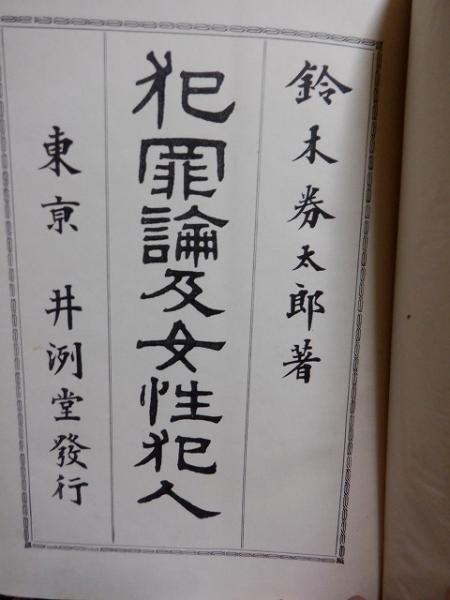 鈴木券太郎著
犯罪論及女性犯人
東京 井洌堂發行